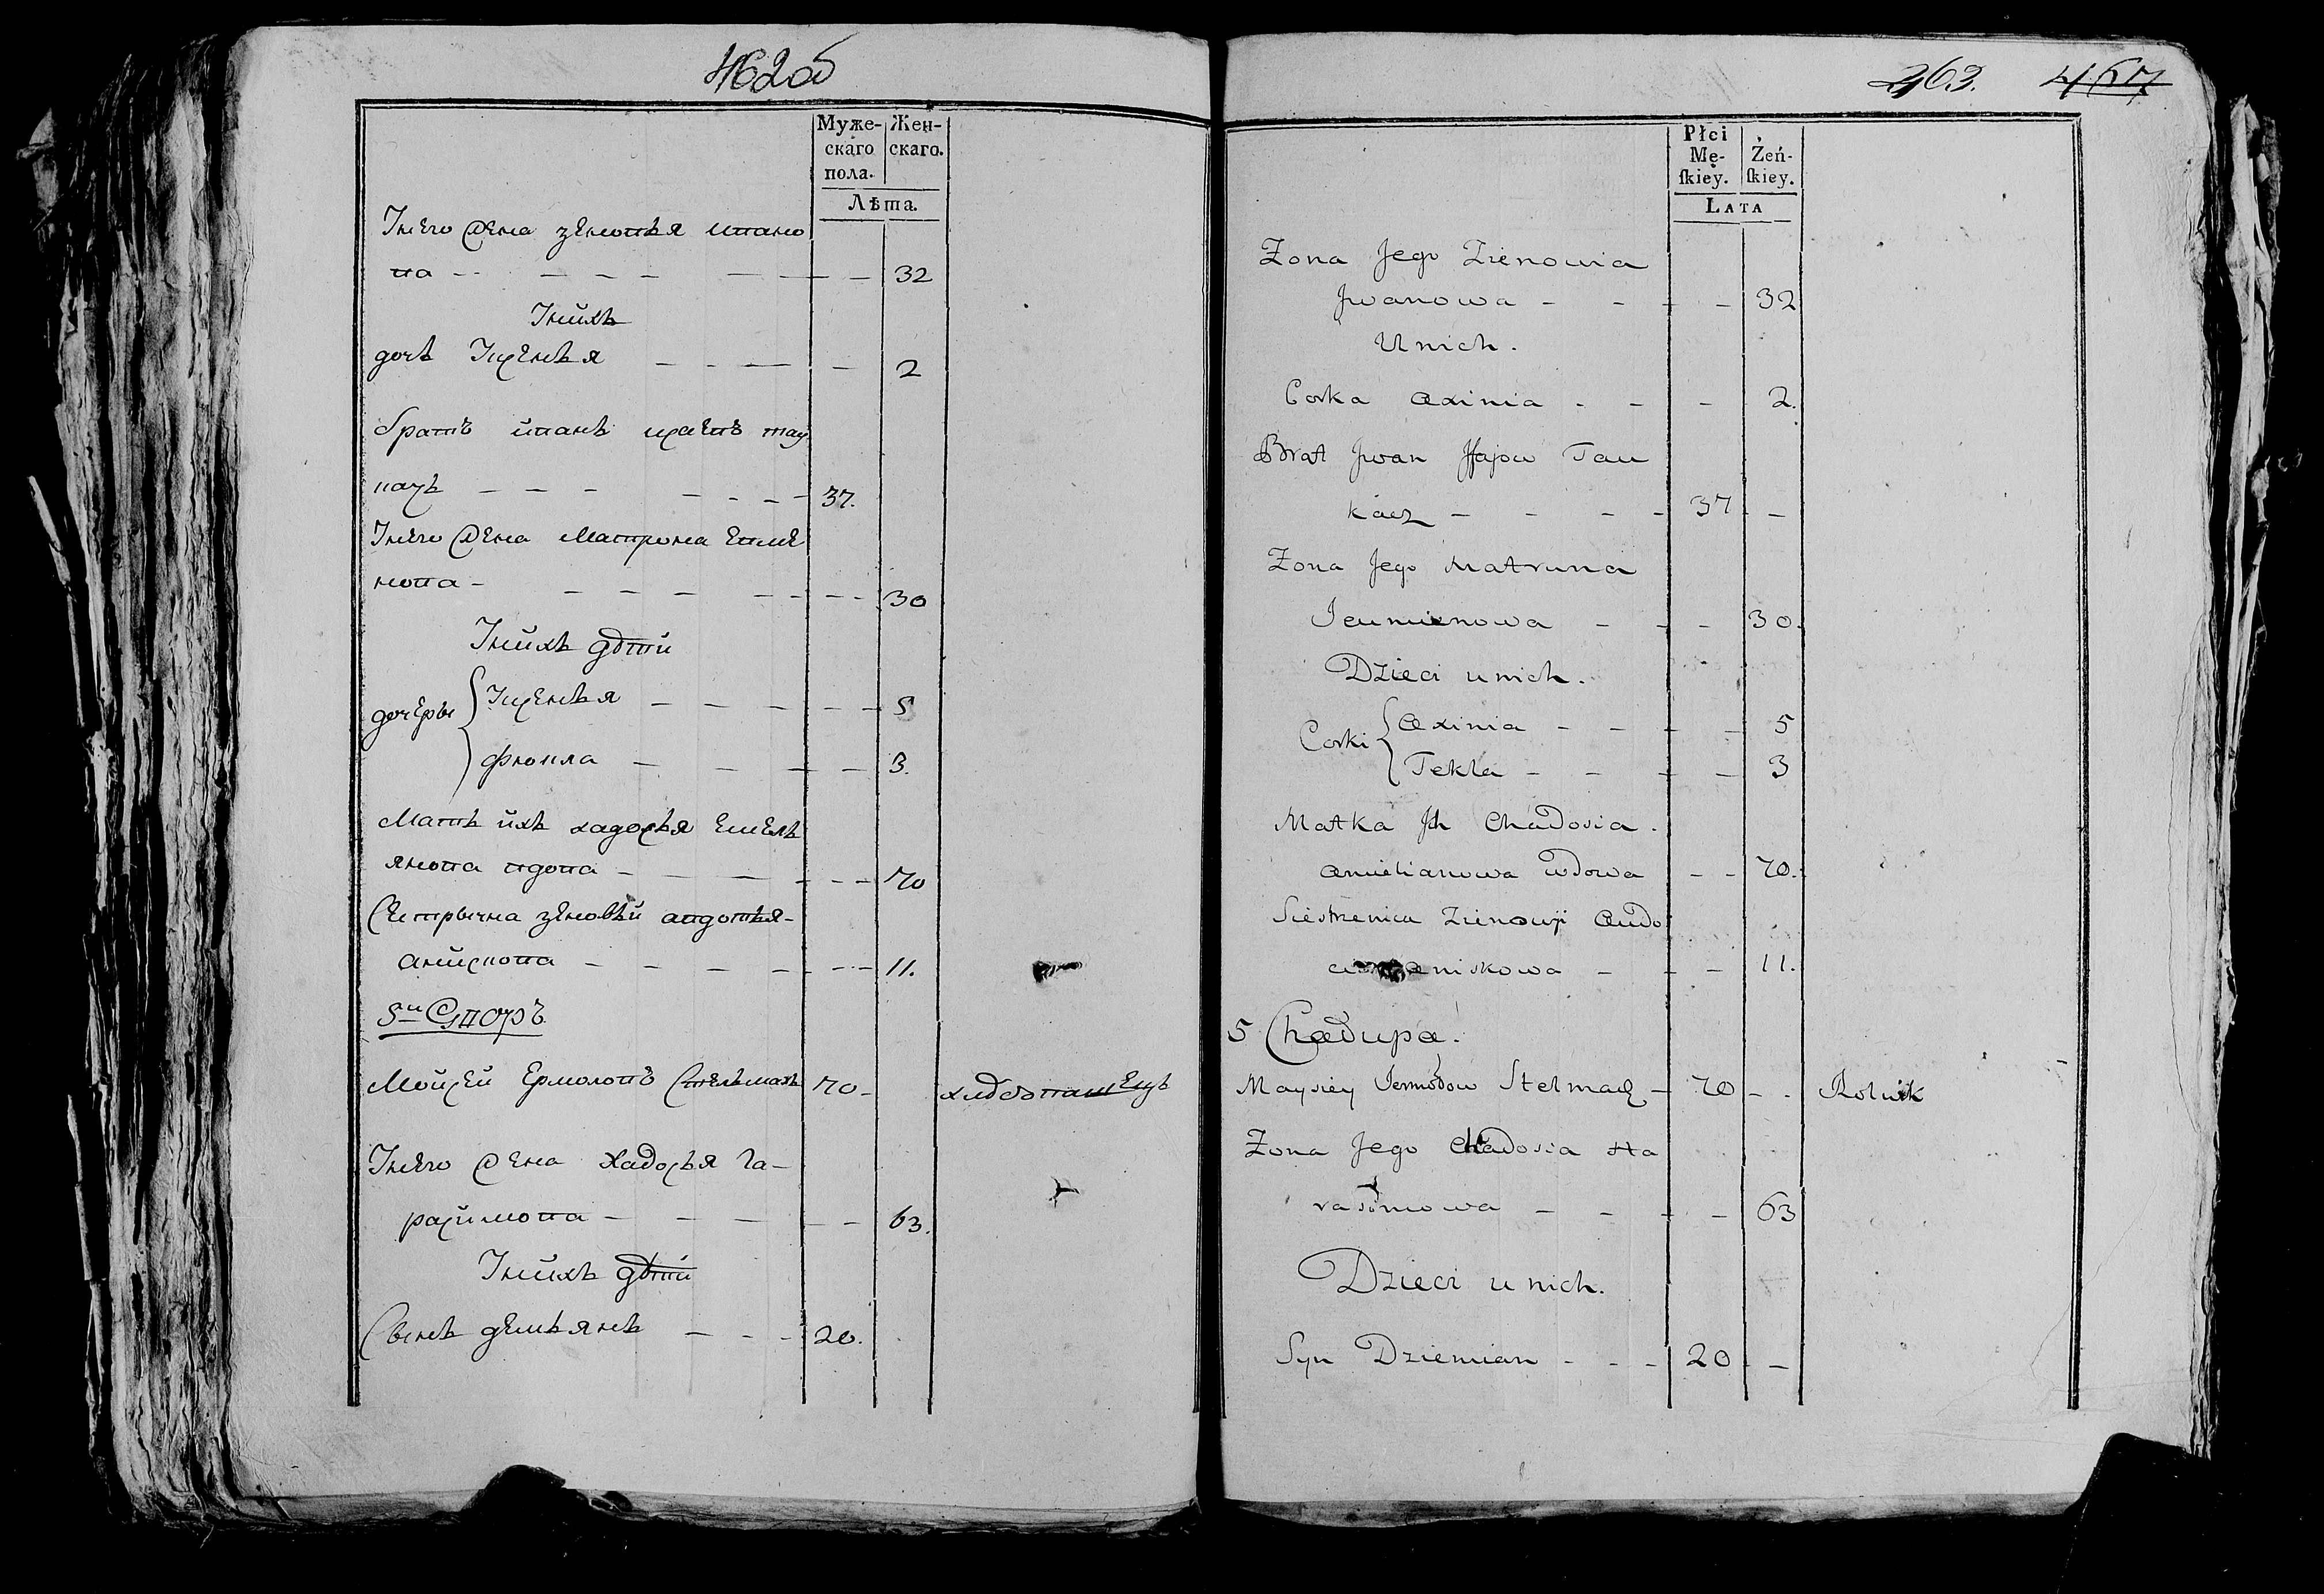 462об
Муже-
скаго
пола.
Жен-
скаго.
Лѣта.
Унего жена зеновья ивано
ва 32
Унихъ
дочь Ксенья 2
братъ иванъ исаевъ тау
качъ 37.
Унего жена Матрона евме
нова 30
Унихъ дѣти
дочеры Ксенья 5
фиокла 3.
Мать ихъ хадосья емель
янова вдова 70
Сестрична зеновьи авдотья
анискова 11.
5й Дворъ
Мойсей Ермоловъ Стельмахъ 70 хлѣбопашецъ
Унего жена Хадосья Га-
расимова 63.
Унихъ дѣти
Сынъ демьянъ 20.
463. 467
Płci
Mę-
ſkiey.
Żeń-
ſkiey.
LATA
Zona Jego Zienowia
Jwanowa 32
U nich.
Corka Axinia 2.
Brat Jwan Jsajow Tau
kacz 37
Zona Jego Matruna
Jeumienowa 30.
Dzieci u nich.
Corki Axinia 5
Tekla 3
Matka Jch Chadosia
Amielianowa wdowa 70.
Siestrzenica Zienowji Audo
aniskowa 11.
5 Chałupa.
Maysiey Jermołow Stelmach 70 Rolnik
Zona Jego Chadosia Ha
rasimowa 63
Dzieci u nich.
Syn Dziemian 20